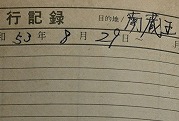 行記録 目的地/南蔵王
和 53 年 8 月 29 日 ~ 月